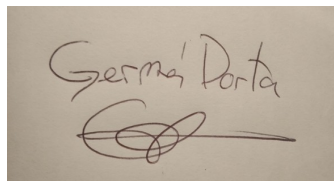 Germá Porta